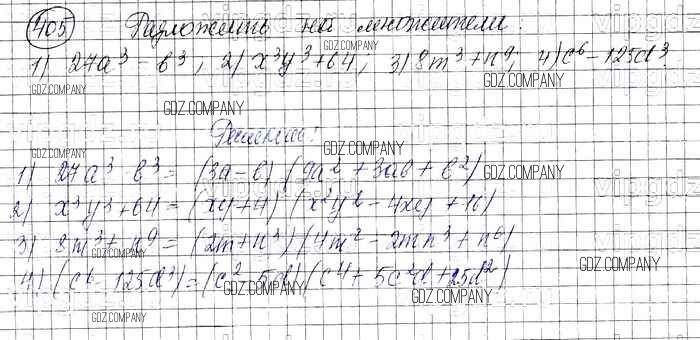 405 Разложить на множители:
1) 27a³ - b³, 2) x³y³ + 64, 3) 8m³ + n⁹, 4) c⁶ - 125d³
Решение:
1) 27a³ - b³ = (3a - b) (9a² + 3ab + b²)
2) x³y³ + 64 = (xy + 4) (x²y² - 4xy + 16)
3) 8m³ + n⁹ = (2m + n³) (4m² - 2mn³ + n⁶)
4) (c⁶ - 125d³) = (c² - 5d) (c⁴ + 5c²d + 25d²)
GDZ.COMPANY
GDZ.COMPANY
GDZ.COMPANY
GDZ.COMPANY
GDZ.COMPANY
GDZ.COMPANY
GDZ.COMPANY
GDZ.COMPANY
GDZ.COMPANY
GDZ.COMPANY
GDZ.COMPANY
GDZ.COMPANY
GDZ.COMPANY